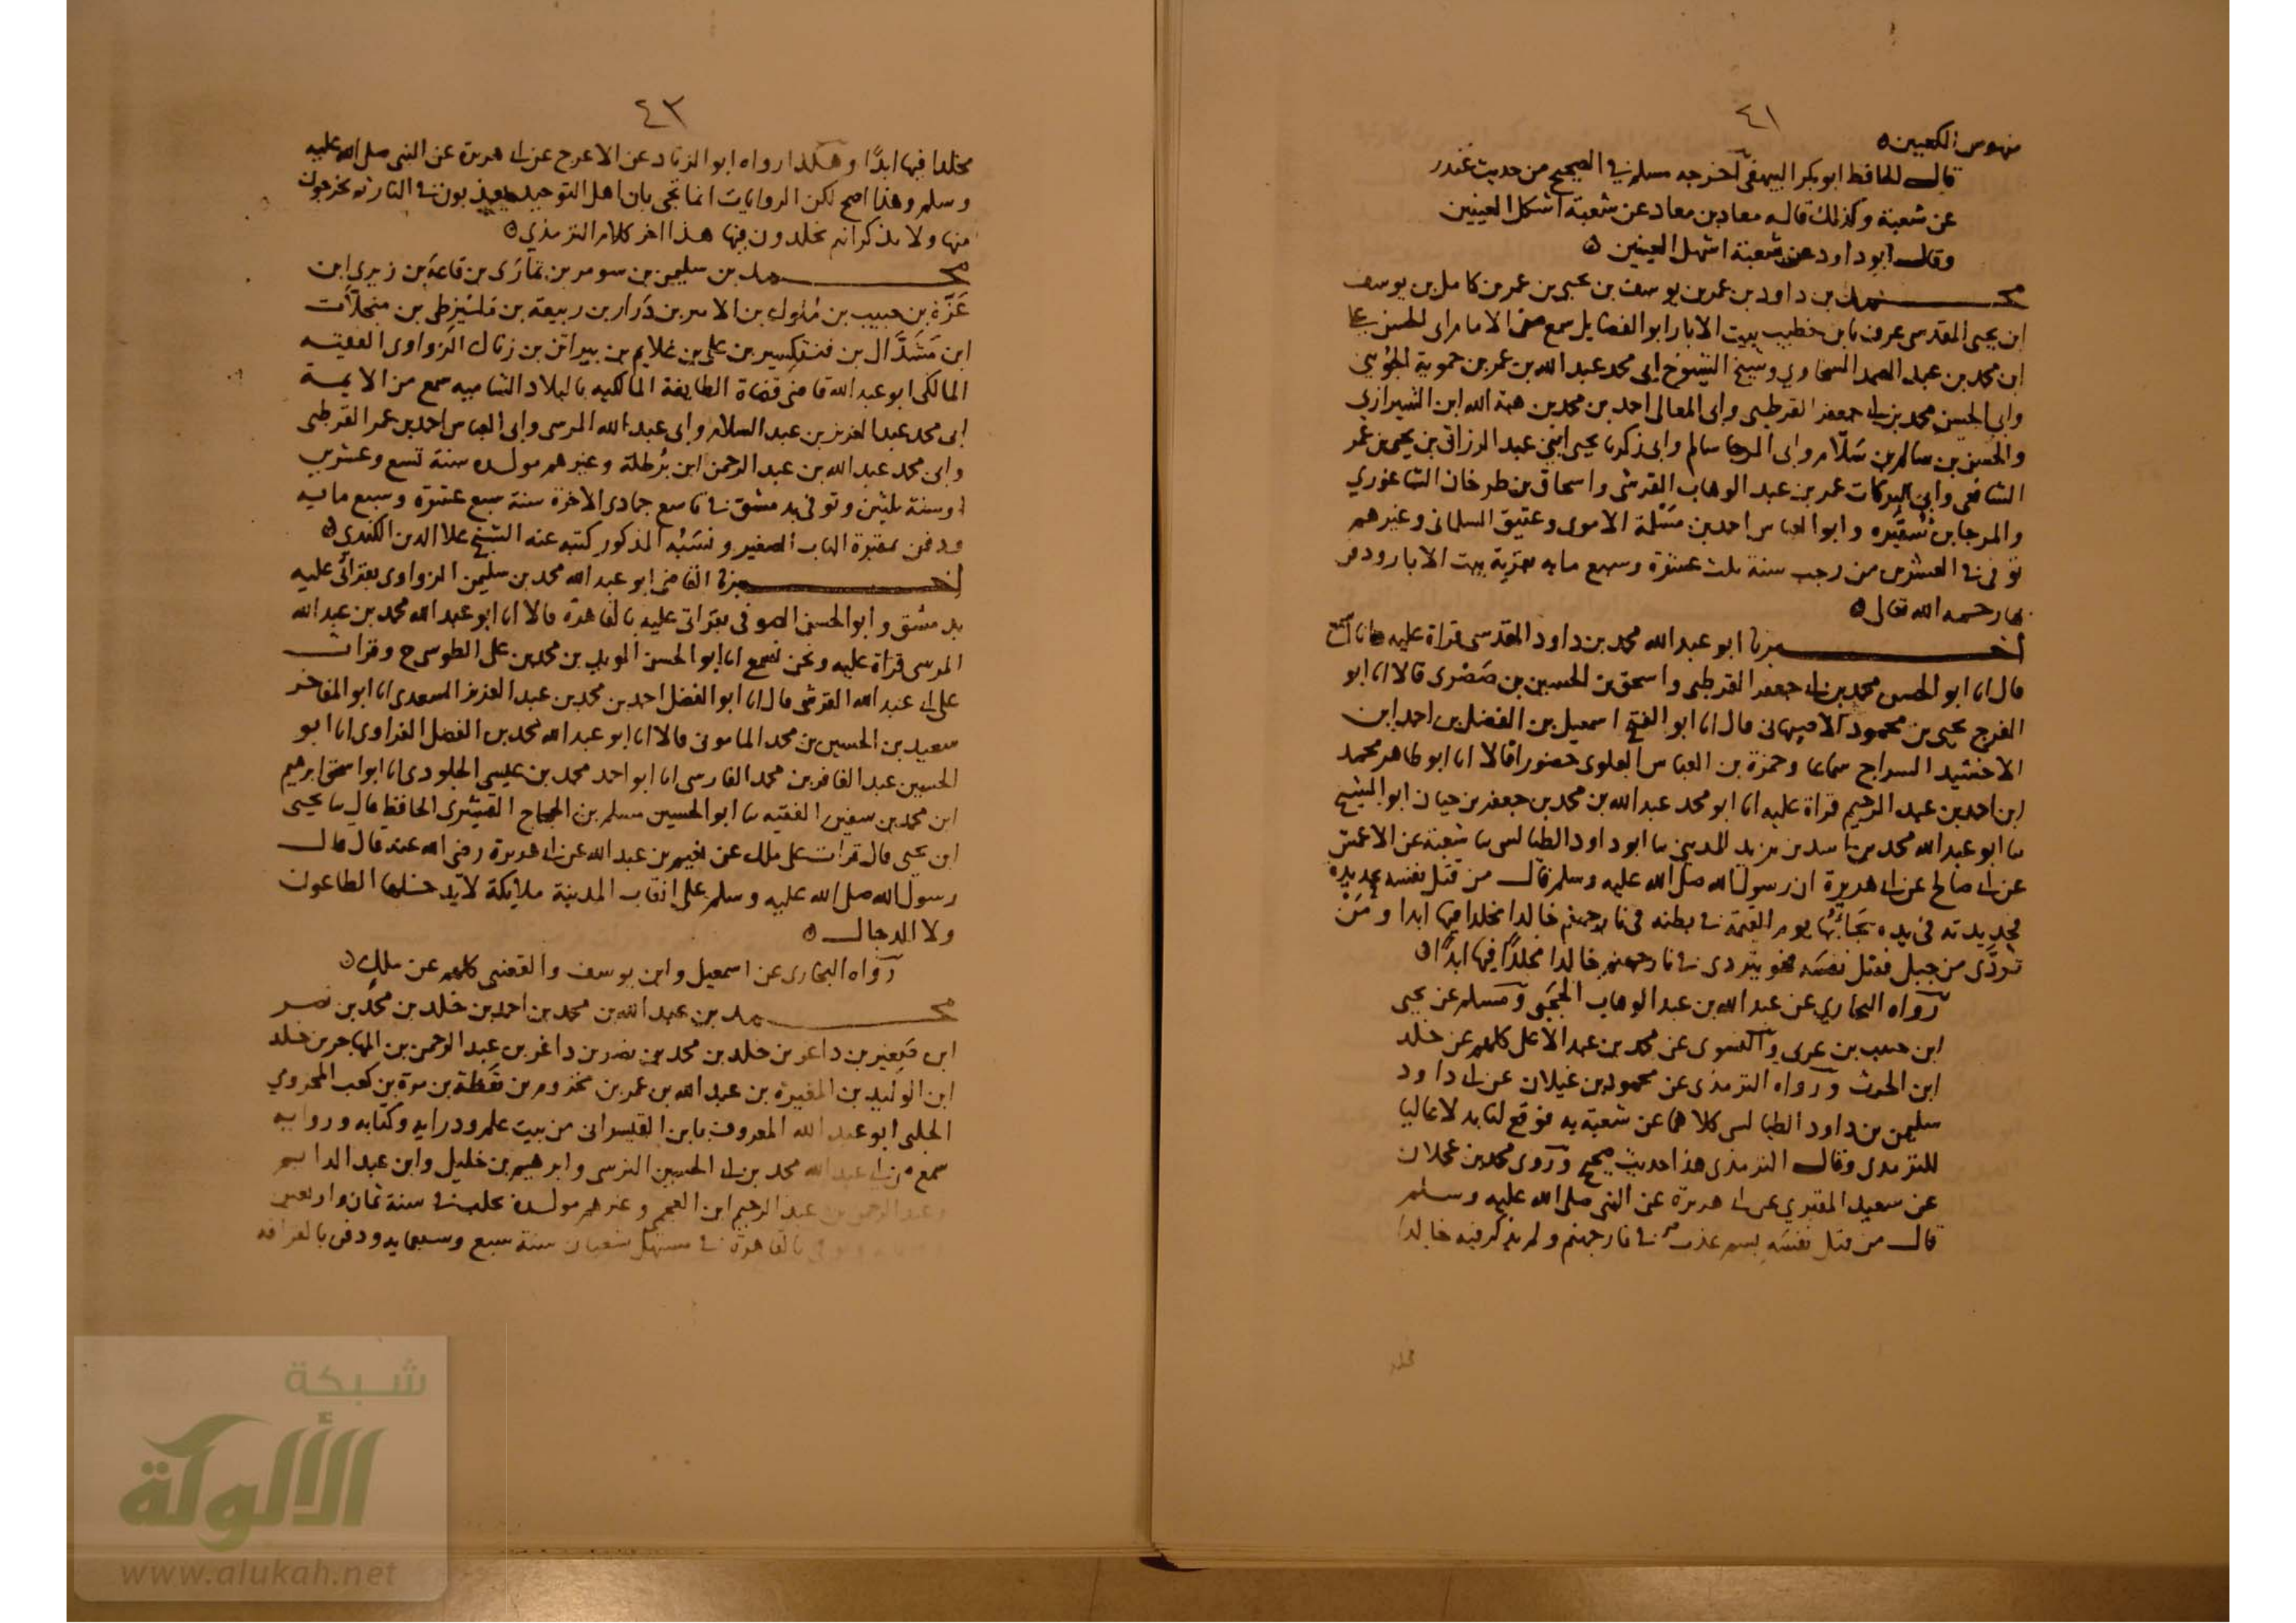 ٤١
منهوس الكعبين
قال الحافظ ابو بكر البيهقي اخرجه مسلم في الصحيح من حديث غندر
عن شعبة وكذلك قاله معاد بن معاد عن شعبة اشكل العينين
وقال ابو داود عن شعبة اشهل العينين
محمد بن داود بن عمر بن يوسف بن يحيى بن عمر بن كامل بن يوسف
ابن يحيى المقدسي عرف بابن خطيب بيت الابار ابو الفضايل سمع من الامام ابي الحسن علي
ابن محمد بن عبد الصمد السخاوي وشيخ الشيوخ ابي محمد عبد الله بن عمر بن حموية الجويني
وابي الحسن محمد بن ابي جعفر القرطبي وابي المعالي احمد بن محمد بن هبة الله ابن الشيرازي
والحسن بن سالم بن سلام وابي المرجا سالم وابي زكريا يحيى ابني عبد الرزاق بن يحيى بن عمر
الشافعي وابي البركات عمر بن عبد الوهاب القرشي واسحاق بن طرخان الشاغوري
والمرجا بن شقيره وابو العباس احمد بن مسلمة الاموي وعتيق السلماني وغيرهم
توفي في العشرين من رجب سنة ثلث عشرة وسبع مايه بقرية بيت الابار ودفن
بها رحمه الله تعالى
اخبرنا ابو عبد الله محمد بن داود المقدسي قراة عليه وانا اسمع
قال انا ابو الحسن محمد بن ابي جعفر القرطبي واسحق بن الحسين بن صصرى قالا انا ابو
الفرج يحيى بن محمود الاصبهاني قال انا ابو الفتح اسمعيل بن الفضل بن احمد ابن
الاخشيد السراج سماعا وحمزة بن العباس العلوي حضورا قالا انا ابو طاهر محمد
ابن احمد بن عبد الرحيم قراة عليه انا ابو محمد عبد الله بن محمد بن جعفر بن حيان ابو الشيخ
ثنا ابو عبد الله محمد بن اسد بن يزيد المديني ثنا ابو داود الطيالسي ثنا شعبة عن الاعمش
عن ابي صالح عن ابي هريرة ان رسول الله صلى الله عليه وسلم قال من قتل نفسه بحديدة
فحديدته في يده يجأ بها يوم القيمة في بطنه في نار جهنم خالدا مخلدا فيها ابدا ومن
تردى من جبل فقتل نفسه فهو يتردى في نار جهنم خالدا مخلدا فيها ابدا
رواه البخاري عن عبد الله بن عبد الوهاب الحجبي ومسلم عن يحيى
ابن حبيب بن عربي والنسوي عن محمد بن عبد الاعلى كلهم عن خلد
ابن الحرث ورواه الترمذي عن محمود بن غيلان عن ابي داود
سليمن بن داود الطيالسي كلاهما عن شعبة به فوقع لنا بدلا عاليا
للترمذي وقال الترمذي هذا حديث صحيح وروى محمد بن عجلان
عن سعيد المقبري عن ابي هريرة عن النبي صلى الله عليه وسلم
قال من قتل نفسه بسم عذب في نار جهنم ولم يذكر فيه خالدا
مخلد
٤٣
مخلدا فيها ابدا وهكذا رواه ابو الزناد عن الاعرج عن ابي هريرة عن النبي صلى الله عليه
وسلم وهذا اصح لكن الروايات انما تجي بان اهل التوحيد يعذبون في النار ثم يخرجون
منها ولا يذكر انهم يخلدون فيها هذا اخر كلام الترمذي
محمد بن سليمن بن سومر بن بن قاعة بن زيري ابن
عزة بن حبيب بن بن الامير بن درار بن ربيعة بن بن
ابن مشدال بن بن علي بن غلايم بن بن زتال الزواوي الفقيه
المالكي ابو عبد الله قاضي قضاة الطايفة المالكيه بالبلاد الشاميه سمع من الايمة
ابي محمد عبد العزيز بن عبد السلام وابي عبد الله المرسي وابي العباس احمد بن عمر القرطبي
وابي محمد عبد الله بن عبد الرحمن ابن برطلة وغيرهم مولده سنة تسع وعشرين
او سنة ثلثين وتوفي بدمشق في تاسع جمادى الاخرة سنة سبع عشرة وسبع مايه
ودفن بمقبرة الباب الصغير ونسبه المذكور كتبه عنه الشيخ علا الدين الكندي
اخبرنا القاضي ابو عبد الله محمد بن سليمن الزواوي بقراتي عليه
بدمشق وابو الحسن الصوفي بقراتي عليه بالقاهرة قالا انا ابو عبد الله محمد بن عبد الله
المرسي قراة عليه ونحن نسمع انا ابو الحسن المويد بن محمد بن علي الطوسي ح وقرات
على ابي عبد الله القرشي قال انا ابو الفضل احمد بن محمد بن عبد العزيز السعدي انا ابو المفاخر
سعيد بن الحسين بن محمد الماموني قالا انا ابو عبد الله محمد بن الفضل الفراوي انا ابو
الحسين عبد الغافر بن محمد الفارسي انا ابو احمد محمد بن عيسى الجلودي انا ابو اسحق ابرهيم
ابن محمد بن سفين الفقيه ثنا ابو الحسين مسلم بن الحجاج القشيري الحافظ قال ثنا يحيى
ابن يحيى قال قرات على ملك عن نعيم بن عبد الله عن ابي هريرة رضي الله عنه قال قال
رسول الله صلى الله عليه وسلم على انقاب المدينة ملايكة لا يدخلها الطاعون
ولا الدجال
رواه البخاري عن اسمعيل وابن يوسف والقعنبي كلهم عن ملك
محمد بن عبد الله بن محمد بن احمد بن خلد بن محمد بن نصر
ابن صغير بن داغر بن خلد بن محمد بن نصر بن داغر بن عبد الرحمن بن المهاجر بن خلد
ابن الوليد بن المغيرة بن عبد الله بن عمر بن مخزوم بن يقظة بن مرة بن كعب المخزومي
الحلبي ابو عبد الله المعروف بابن القيسراني من بيت علم ودرايه وكتابه وروايه
سمع من ابي عبد الله محمد بن ابي الحسين النرسي وابرهيم بن خليل وابن عبد الدايم
وعبد الرحمن بن عبد الرحيم ابن العجمي وغيرهم مولده بحلب في سنة ثمان واربعين
وتوفي بالقاهرة في مستهل شعبان سنة سبع وسبعمايه ودفن بالقرافه
شبكة
الألوكة
www.alukah.net